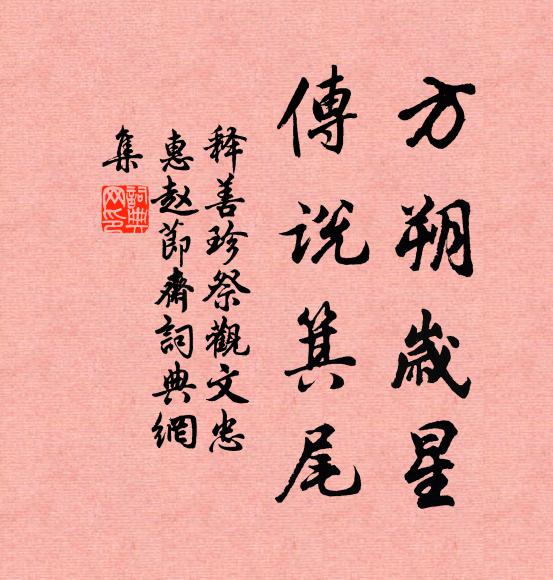 方朔歲星
傳說箕尾
释善珍祭觀文忠
惠赵節齋詞典網
集
詞典网印